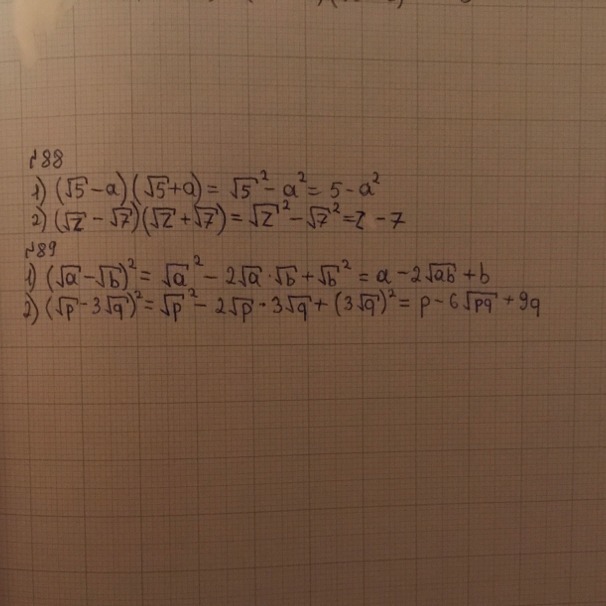 №88
1) (√5 - a)(√5 + a) = √5² - a² = 5 - a²
2) (√z - √7)(√z + √7) = √z² - √7² = z - 7
№89
1) (√a - √b)² = √a² - 2√a · √b + √b² = a - 2√ab + b
2) (√p - 3√q)² = √p² - 2√p · 3√q + (3√q)² = p - 6√pq + 9q